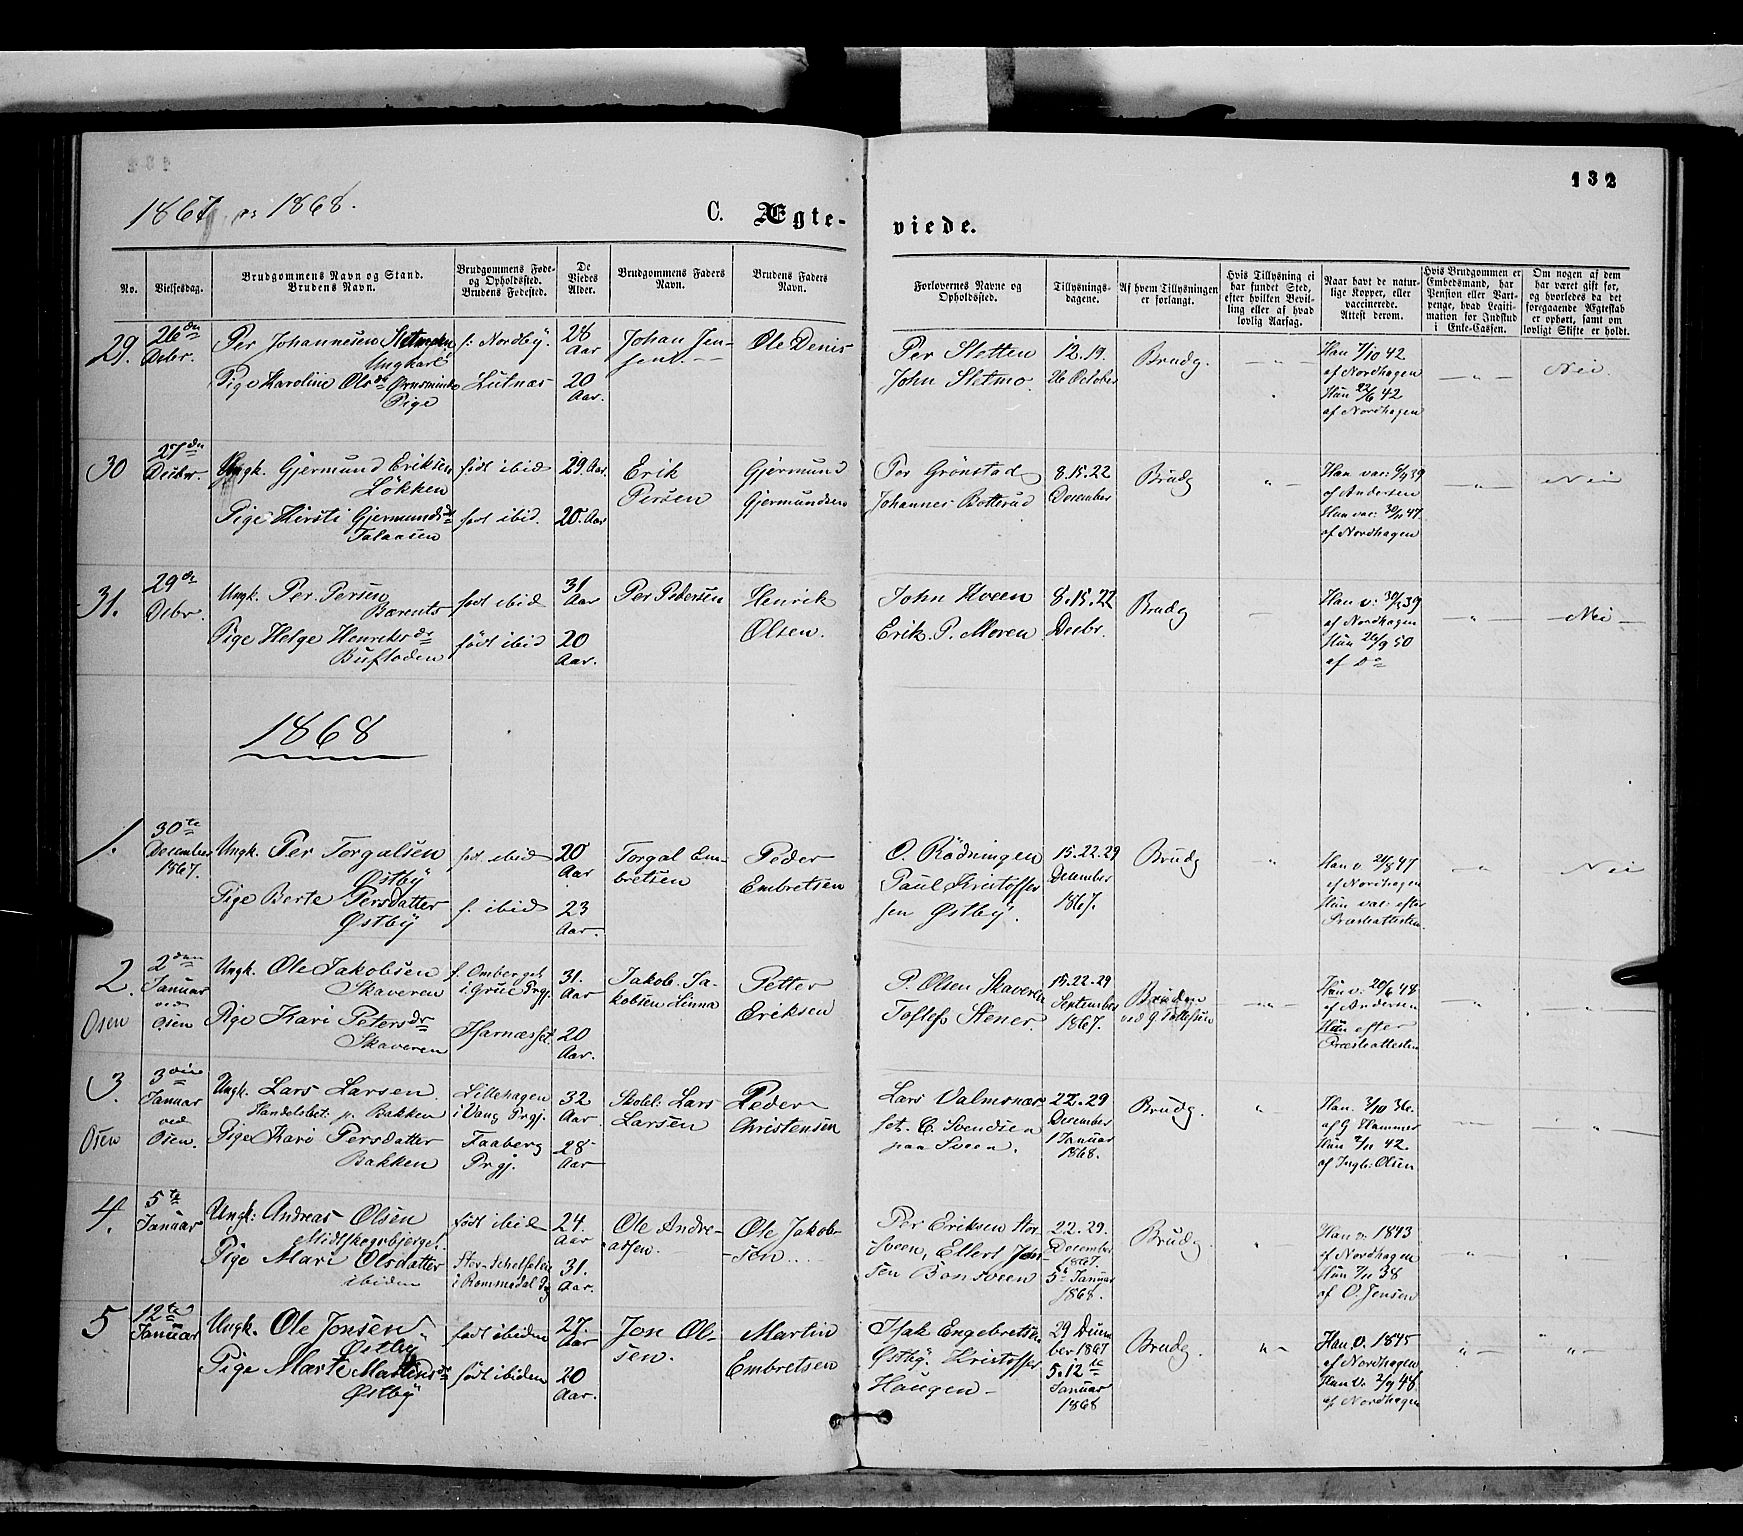 132
1867 og 1868.
C. Ægte-
viede.
No.
Vielsesdag.
Brudgommens Navn og Stand.
Brudens Navn.
Brudgommens Føde-
og Opholdssted.
Brudens Fødested.
De
Viedes
Alder.
Brudgommens Faders
Navn.
Brudens Faders
Navn.
Forlovernes Navne og
Opholdssted.
Tillysnings-
dagene.
Af hvem Tillysningen
er forlangt.
Hvis Tillysning ei
har fundet Sted,
efter hvilken Bevil-
ling eller af hvad
lovlig Aarsag.
Naar havt de natur-
lige Kopper, eller
vaccinerede.
Attest derom.
Hvis Brudgommen er
Embedsmand, har
Pension eller Vart-
penge, hvad Legiti-
mation for Indskud
i Enke-Cassen.
Om nogen af dem
har været gift før,
og hvorledes da det
foregaaende Ægteskab
er ophørt, samt om
lovligt Skifte er holdt.
29.
26de
Debr.
Per Johannesen
Ungkarl
Pige Karoline Olsdr
Pige
f. Nordby.
Lutnæs
28
Aar
20
Aar.
Johan Jen-
sen.
Ole Denis
Per Sletten
John Sletmo
12. 19.
26 October
Brudg.
Han 7/10 42
af Nordhagen
Hun 22/6 42
af Nordhagen
Nei
30
27de
Decbr.
Ungk. Gjermund Eriksen
Løkken
Pige Kirsti Gjermundsdr
Talaasen
født ibid
født ibid.
29. Aar
20. Aar
Erik
Persen
Gjermund
Gjermundsen
Per Grønstad
Johannes Botterud
8. 15. 22
December
Brudg
Han vac: 6/9 39
af Andersen
Hun vac: 30/ 47
af Nordhagen
Nei
31.
29de
Debr.
Ungk. Per Persen
Bærents
Pige Helge Henriksdr
Bufloden
født ibid
født ibid
31
Aar
20
Aar.
Per Pedersen
Henrik
Olsen.
John Hveen
Erik P. Moren
8. 15. 22
Decbr.
Brudg
Han v: 30/ 39
af Nordhagen
Hun 26/9 50
af Do
Nei
1868
1.
30te
December
1867.
Ungk. Per Torgalsen
Østby
Pige Berte Persdatter
Østby
født ibid
f. ibid
20
Aar
23
Aar.
Torgal Em-
bretsen
Peder
Embretsen
O. Rødningen
Paul Kristoffer
sen Østby.
15. 22. 29
December
1867.
Brudg
Han v 21/8 47
af Nordhagen
Hun vac: efter
Præsteattesten
Nei
2.
Osen
2den
Januar
ved
Osen
Ungk. Ole Jakobsen
Skaveren
Pige Kari Petersdr
Skaveren
f. Omberget
i Grue Prgj.
Hjarnæsset
31.
Aar
20
Aar.
Jakob Ja-
kobsen Linna
Petter
Eriksen
P. Olsen Skaveren
Tollef Stener
15. 22. 29
September
1867.
Bruden
ved G. Tollefsen
Han v. 20/6 48
af Andersen
Hun efter
Præsteattesten
3
Osen
3die
Januar
ved
Osen.
Ungk. Lars Larsen
Handelsbet. p. Bakken
Pige Kari Persdatter
Bakken
Lillehagen
i Vang Prgj.
Faaberg
Prgj.
32
Aar
28
Aar
Skolel. Lars
Larsen
Peder
Christensen
Lars Valmsnæs
set. C. Svendsen
paa Sveen.
22. 29
December
1 Januar
1868.
Brudg.
Han. 3/10 36.
af G Hammer
Hun 2/11 42.
af Ingb: Olsen
4.
5te
Januar
Ungk: Andreas Olsen
Midtskogsbjerget
Pige Mari Olsdatter
ibiden
født ibid
i Rommedal
24.
Aar
31.
Aar.
Ole Andre-
assen.
Ole Jakob-
sen
Per Eriksen Stor-
sveen, Ellert Jon-
sen Bonsveen
22. 29.
December
1867.
5te Januar
1868.
Brudg
Han v. 1843
af Nordhagen
Hun 7/11 38
af O. Jensen
5
12te
Januar
Ungk. Ole Jonsen
Østby
Pige Marte Martinsdr
Østby
født ibiden
født ibiden
27.
Aar
20
Aar.
Jon Ol-
sen.
Martin
Embretsen
Isak Engebretsen
Østby. Kristoffer
Haugen
29 Decem
ber 1867
5. 12te
Januar
1868
Brudg.
Han v. 1845
af Nordhagen
Hun v. 2/9 48
af Nordhagen